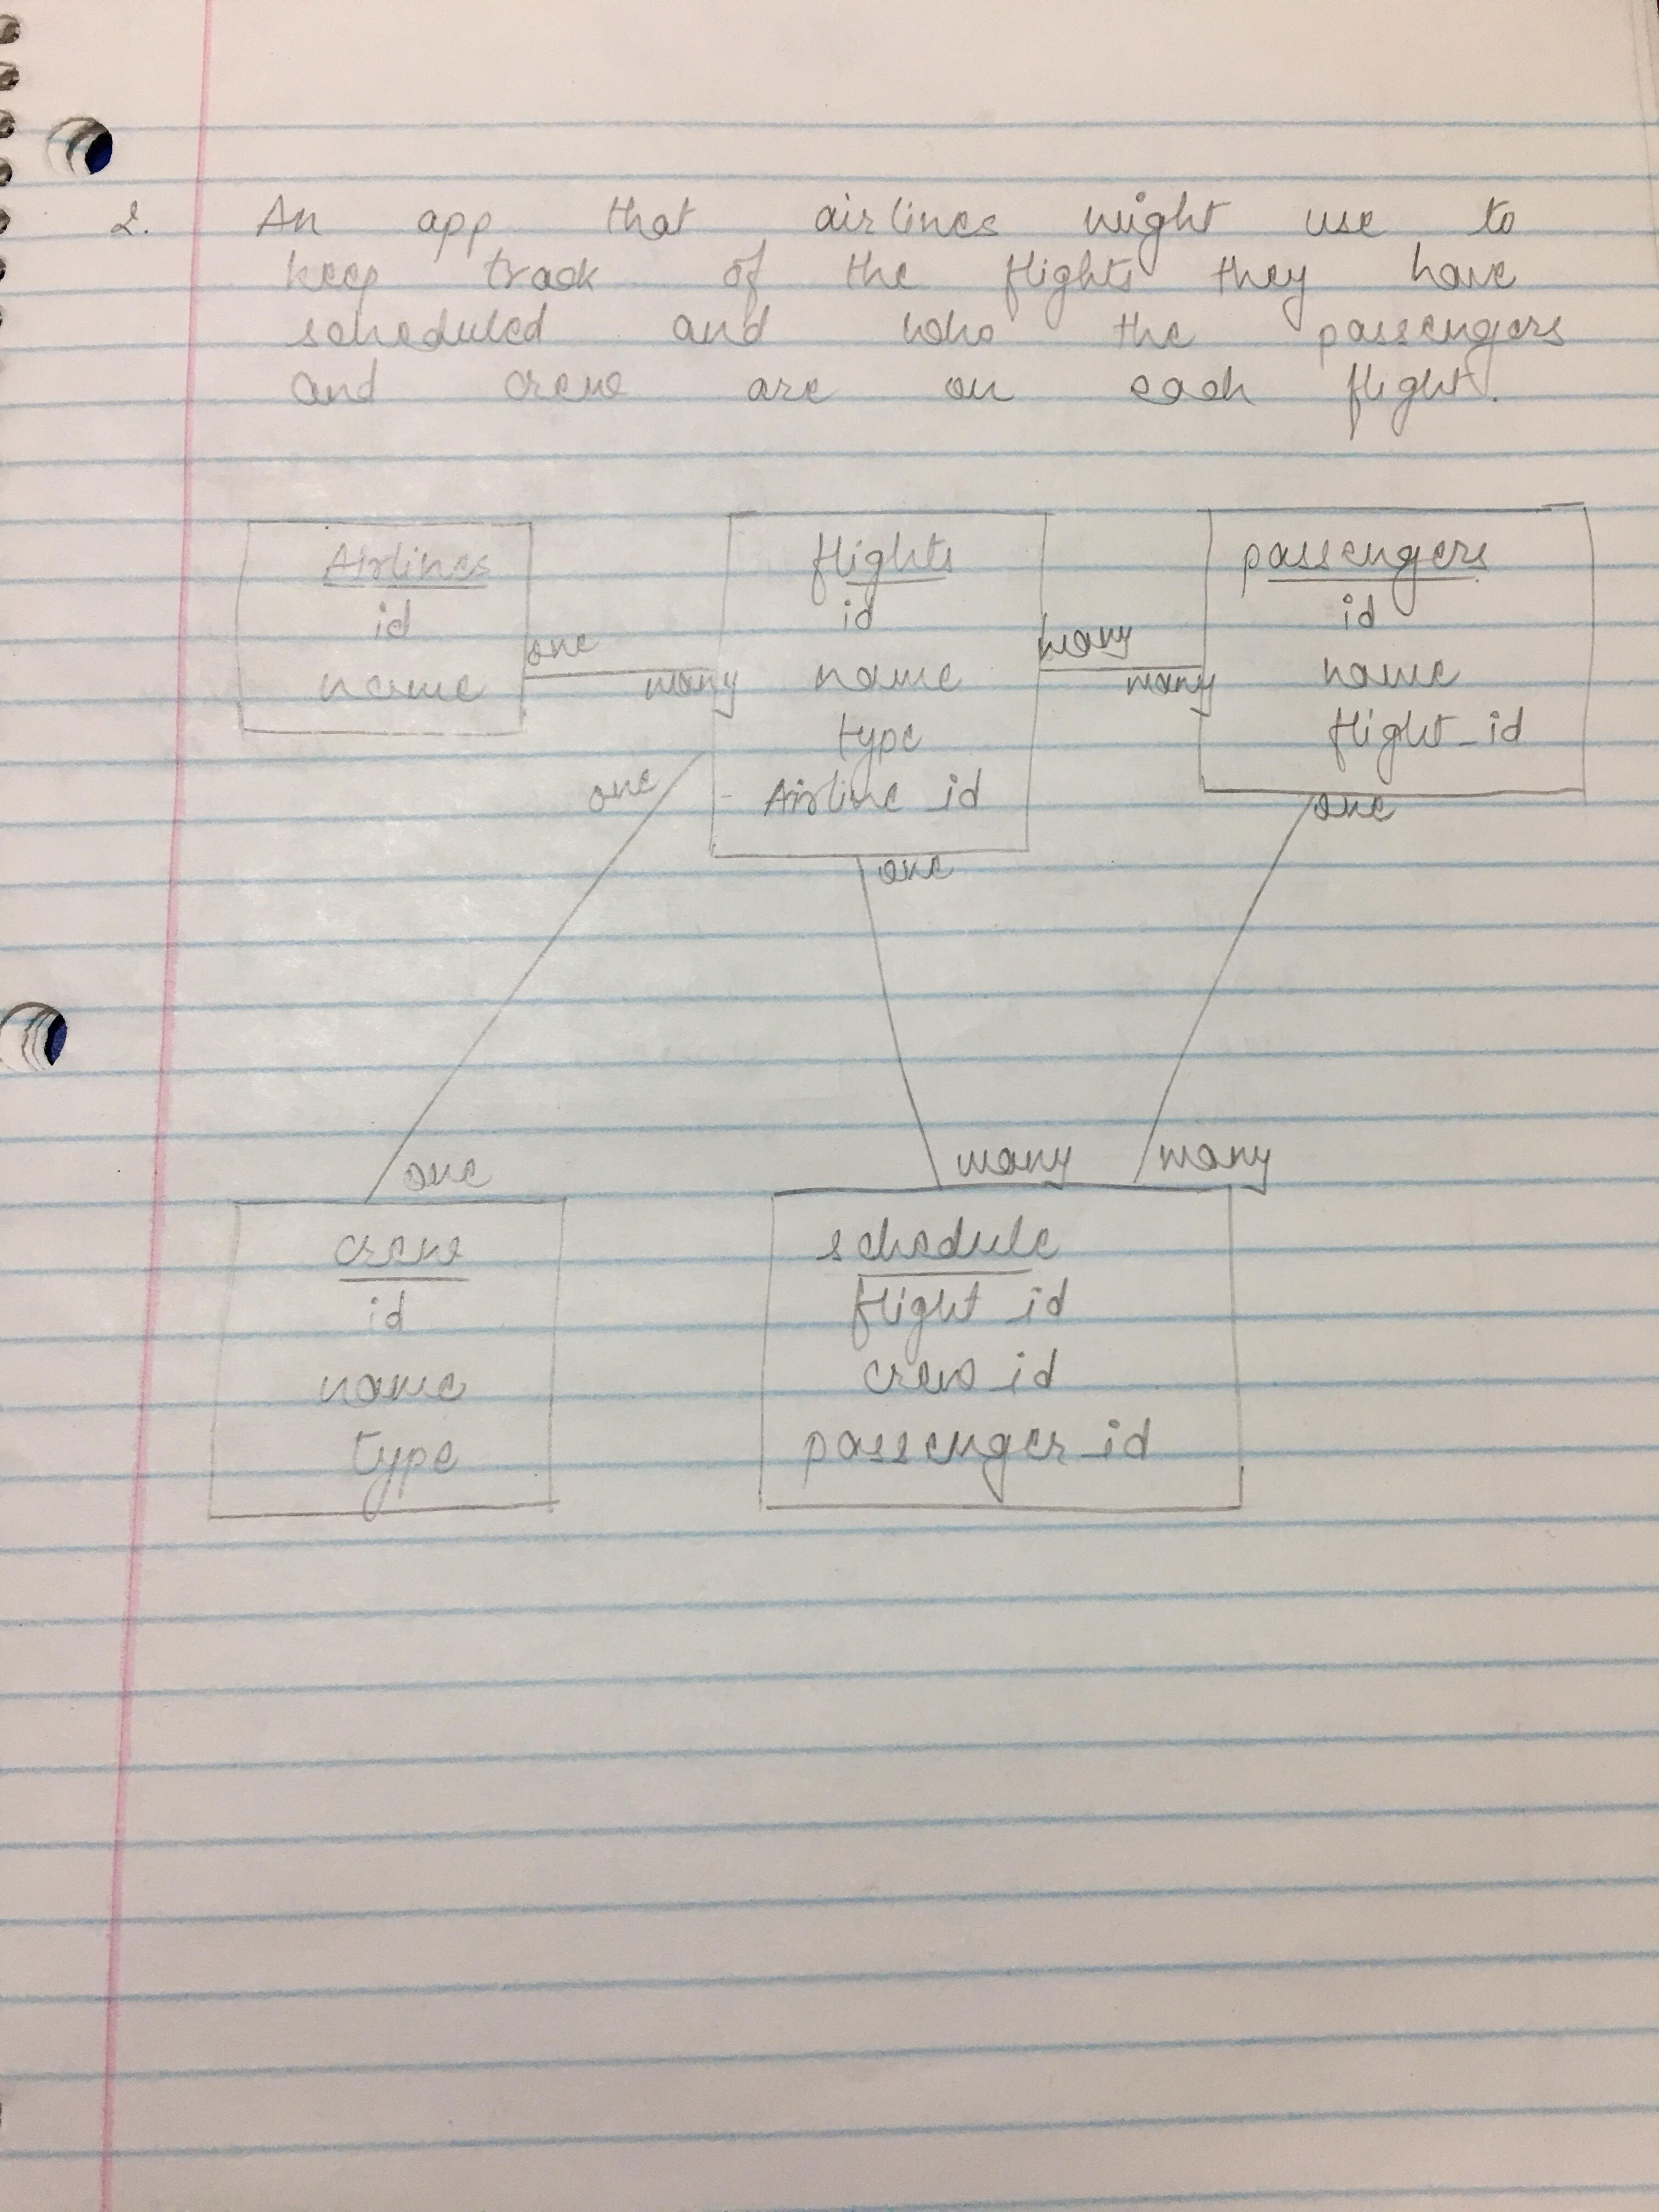 2. An app that airlines might use to
keep track of the flights they have
scheduled and who the passengers
and crew are on each flight.
Airlines
id
name
one
many
flights
id
name
type
Airline_id
many
many
passengers
id
name
flight_id
one
one
one
one
many
many
crew
id
name
type
schedule
flight_id
crew_id
passenger_id